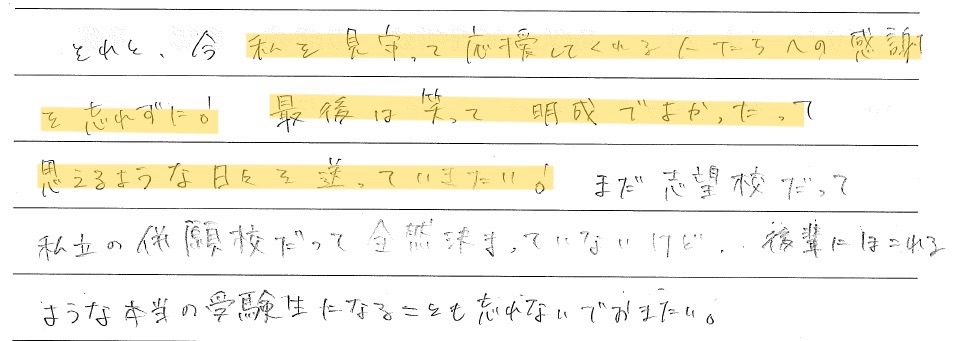 それと、今私を見守って応援してくれる人たちへの感謝
を忘れずに! 最後は笑って明成でよかったって
思えるような日々を送っていきたい! まだ志望校だって
私立の併願校だって全然決まっていないけど、後輩にほこれる
ような本当の受験生になることも忘れないでおきたい。